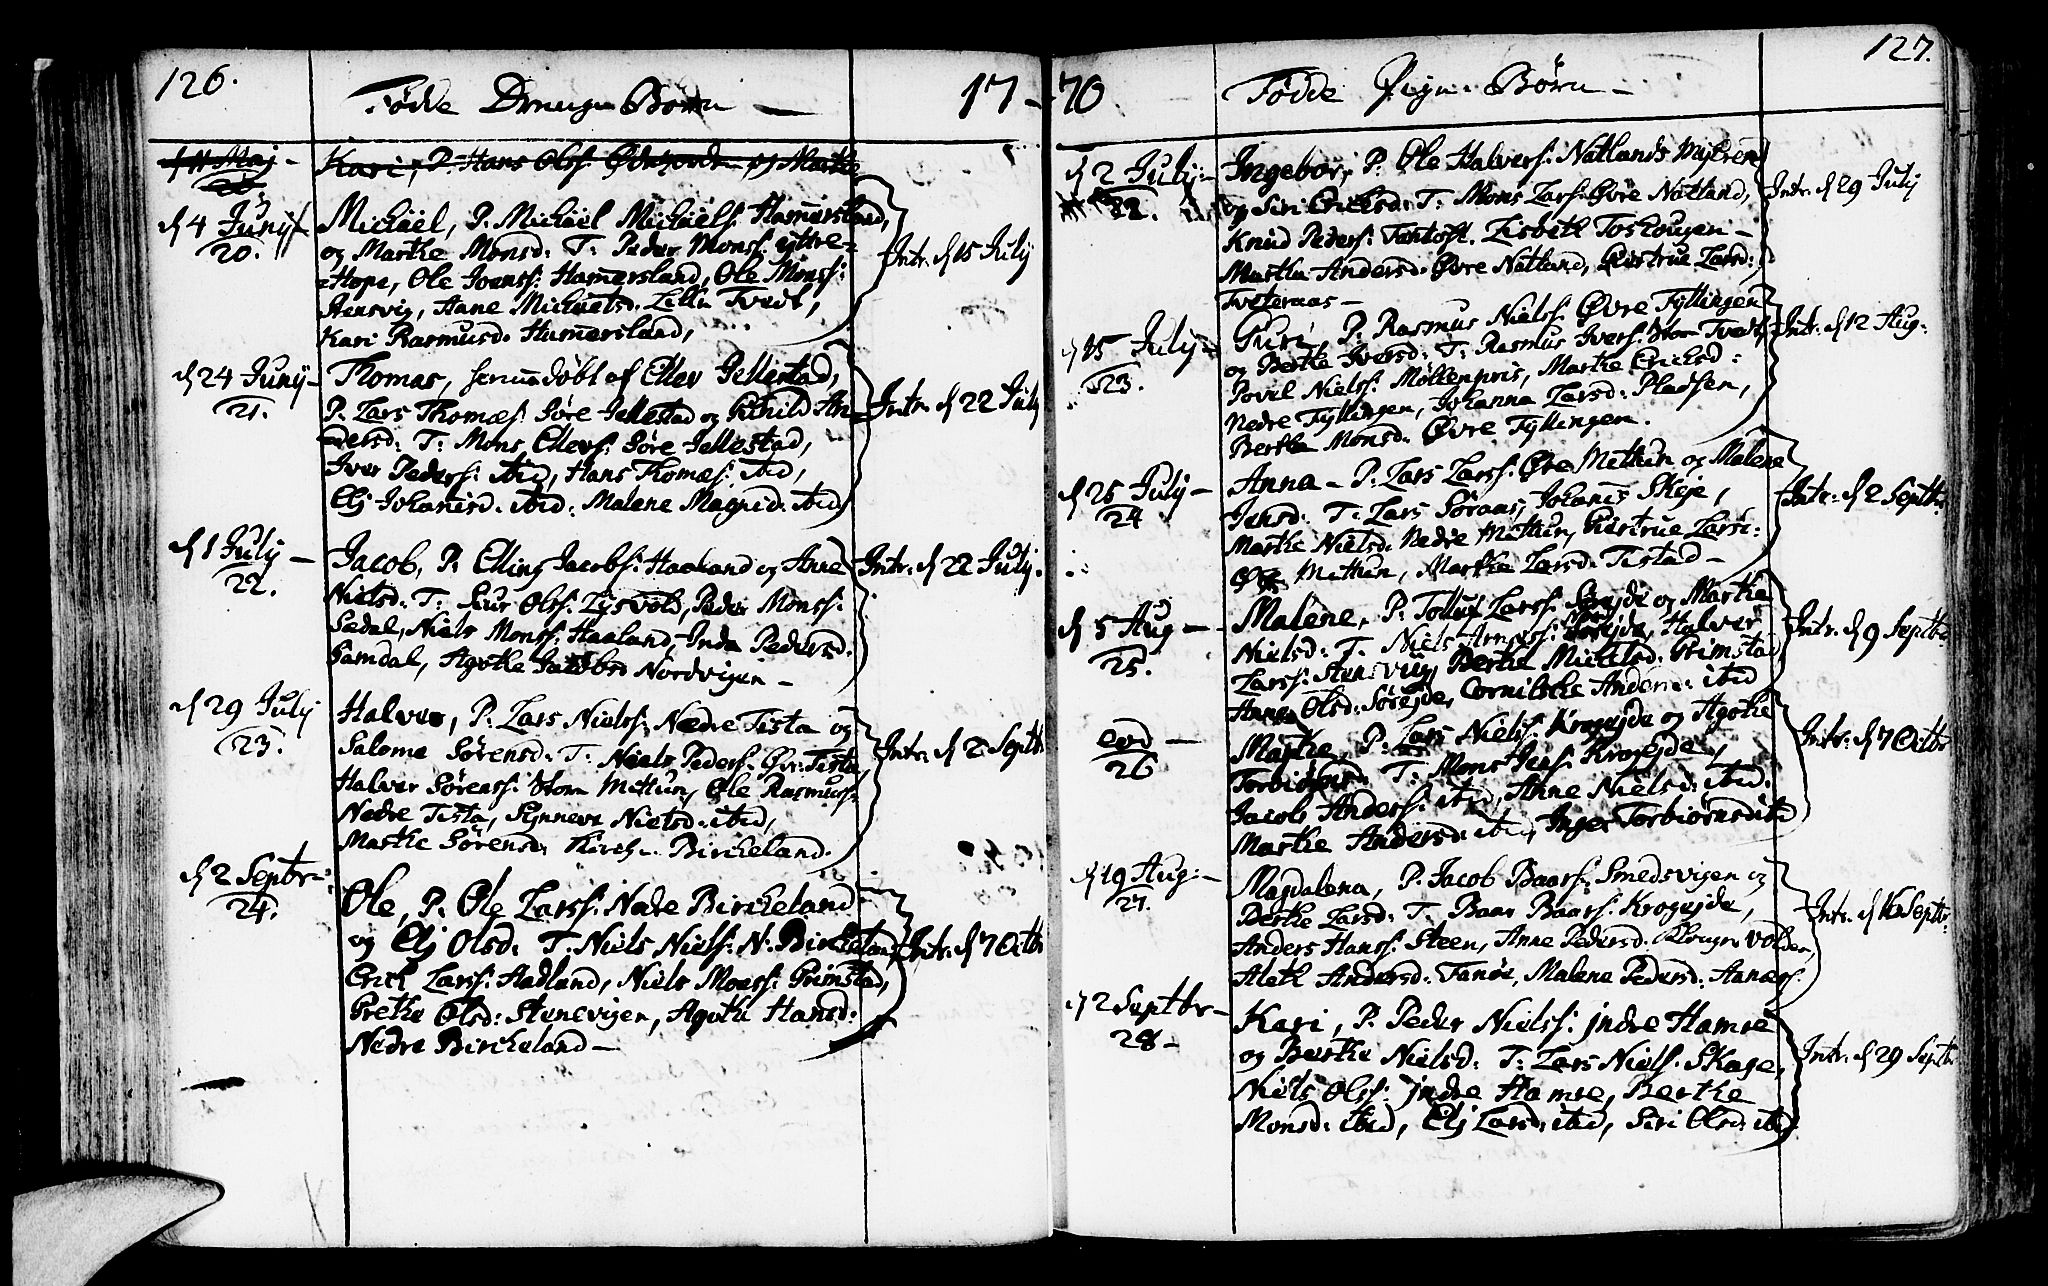 126.
Fødde Drenge Børn —
17
d 11 Maj -
Kari, P. Hans Olss: og Marthe
d 4 Junij
20.
Michäel, P. Michäel Michäels: Hamersland,
og Marthe Monsd: T: Peder Monss: yttre=
=Hope, Ole Iverss: Hamersland, Ole Monss:
Stensvig, Hane Michaelsd: Tvedt,
Kari Rasmusd: Hamersland,
Intr: d 15 July
d 24 Junij -
21.
Thomas, hiemdøbt af Ellev Jellestad,
P. Lars Thomæs: Søre Jellestad og Gunild An-
dersd: T: Mons Ellevs: Søre Jellestad,
Iver Peders: ibid, Hans Thomæs: ibid,
Elj Johanisd: ibid: Malene Magned: ibid
Intr: d 22 July
d 1 July -
22.
Jacob, P. Elling Jacobs: Haaland og Anne
Nielsd: T: Siur Olss: Lysvold, Peder Monss:
Sædal, Niels Monss: Haaland, Inda Pedersd:
Samdal, Agothe Nordvigen -
Intr: d 22 July.
d 29 July
23.
Halver, P. Lars Nielss: Nedre Tista og
Salome Sørensd: T: Niels Peders: Øv: Tista,
Halver Sørens: Store Mithun, Ole Rasmuss:
Nedre Tista, Synneve Nielsd: ibid,
Marthe Sørensd: Kirch- Birckeland.
Intr: d 2 Septbr
d 2 Septbr -
24.
Ole, P. Ole Larss: Nedre Birckeland
og Elj Olsd: T: Niels Niels: N: Birckeland,
Erick Larss: Aadland, Niels Monss: Grimstad,
Grethe Olsd: Stenevigen, Agothe Hansd:
Nedre Birckeland -
Intr: d 7 Octbr
127.
70
Fødde Pige- Børn -
d 2 July -
22.
Ingebor, P. Ole Halvers: Natlands
og Siri Ericksd: T: Mons Larss: Øvre Natland,
Knud Peders: Fantoft. Lisbeth Toskougen -
Martha Andersd: Øvre Natland, Giertrue Larsd:
Tveteraas -
Intr: d 29 July
d 15 July -
23.
Guri, P. Rasmus Niels: Øvre Fyllingen
og Berthe Iversd: T: Rasmus Ivers: Store Tvedt,
Povel Nielss: Møllenpris, Marthe Ericksd:
Nedre Fyllingen, Johanna Larsd: Pladsen,
Bertha Monsd: Øvre Fyllingen.
Intr: d 12 Aug:
d 25 July -
24
Anna - P. Lars Larss: Øvre Mithun og Malene
Jensd: T: Lars Søraas, Johanes Skeje,
Marthe Nielsd: Nedre Mithun, Giertrue Larsd:
Mithun, Marthe Larsd: Tistad -
Intr: d 2 Septbr:
d 5 Aug -
25.
Malene, P: Tollef Larss: Sørejde og Marthe
Nielsd: T: Niels Arness: Sørejde, Halver
Larss: Stensvig, Berthe Michelsd: Grimstad
Hanna Olsd: Sørejde, Cornilske Andersd: ibid
Intr: d 9 Septbr
eod -
26
Marthe, P. Lars Niels: Krogejde og Agothe
Torbiørnsd: T: Mons Jens: Krogejde,
Jacob Anders: ibid, Anne Nielsd: ibid:
Marthe Andersd: ibid, Inger Torbiørnsd: ibid
Intr: d 7 Octbr
d 19 Aug: -
27.
Magdalena, P. Jacob Baars: Smedsvigen og
Berthe Larsd: T. Baar Baars: Krogejde,
Anders Hanss: Steen, Anne Pedersd: volden,
Aleth Andersd: Tanøe, Malene Pedersd:
Intr: d 16 Septbr.
d 2 Septbr -
28 -
Kari, P. Peder Nielss: jndre Hamre
og Berthe Nielsd: T: Lars Niels: Skage,
Niels Olss: jndre Hamre, Berthe
Monsd: ibid, Elj Larsd: ibid, Siri Olsd: ibid
Intr: d 29 Septbr